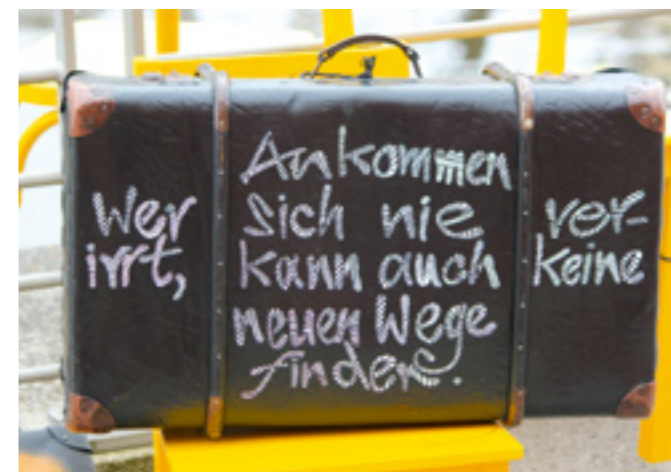 Ankommen
Wer sich nie ver-
irrt, kann auch keine
neuen Wege
finden.